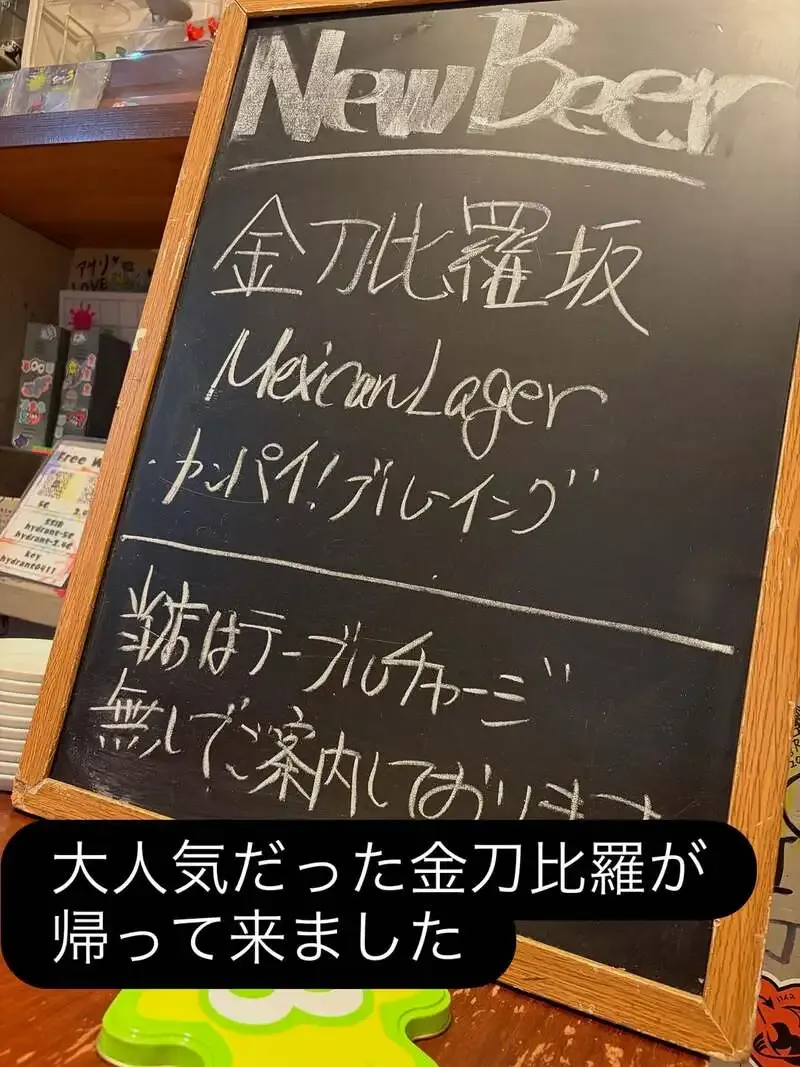 New Beer
金刀比羅坂
Mexican Lager
カンパイ!ブルーイング
当店はテーブルチャージ
無しでご案内しております
大人気だった金刀比羅が
帰って来ました
アサリ
LOVE
Free W
hydrant-5G
hydrant-2.4G
key
hydrant0411